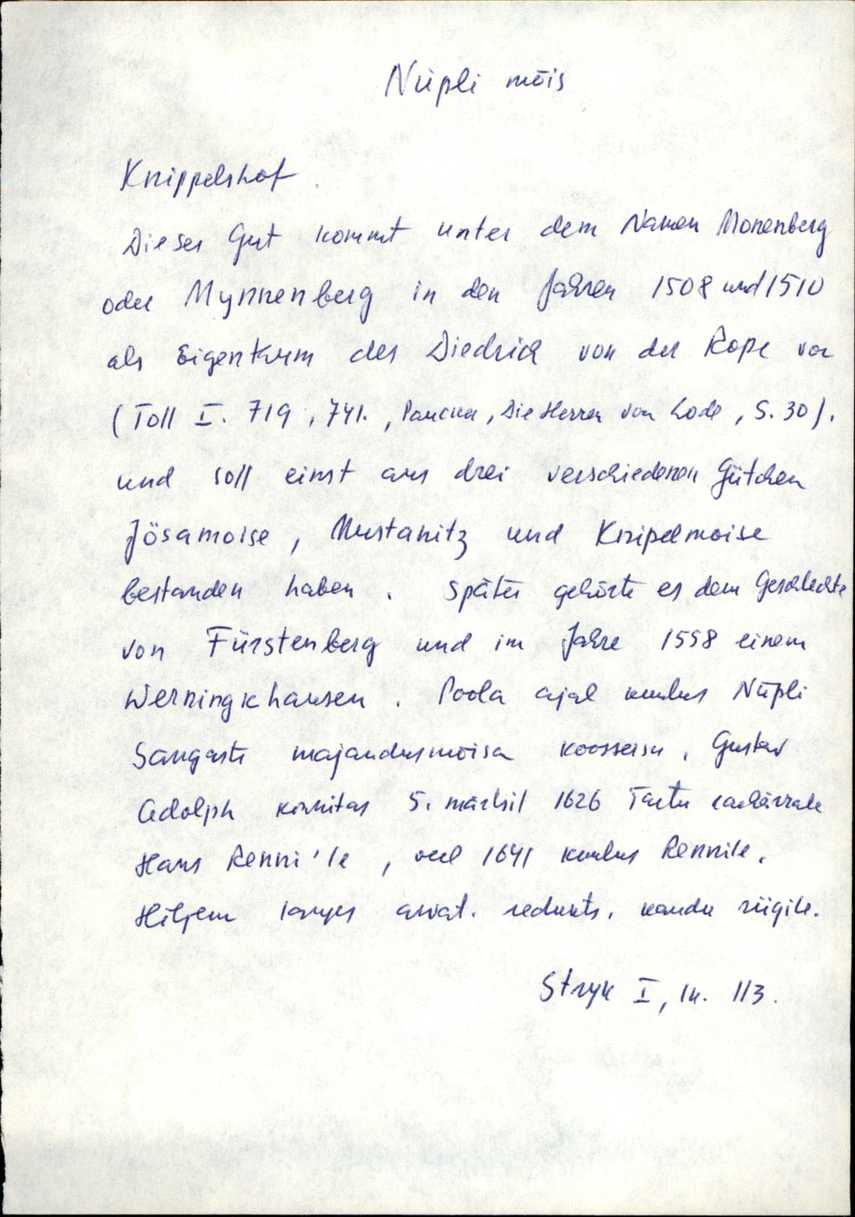 Nüpli mõis
Knippelshof
Dieses Gut kommt unter dem Namen Monenberg
oder Mynnenberg in den Jahren 1508 und 1510
als Eigentum des Diedrich von der Rope vor
(Toll I. 719, 741., Paucker, Die Herren von Lode, S. 30).
und soll einst aus drei verschiedenen Gütchen
Jösamoise, Mustanitz und Knipelmoise
bestanden haben. Später gehörte es dem Geschlechte
von Fürstenberg und im Jahre 1558 einem
Werningkhausen. Poola ajal kuulus Nüpli
Sangaste majandusmõisa koosseisu. Gustav
Adolph kinnitas 5. märtsil 1626 Tartu
Hans Renni'le, veel 1641 kuulus Rennile.
Hiljem redukts. kaudu riigile.
Stryk I, lk. 113.